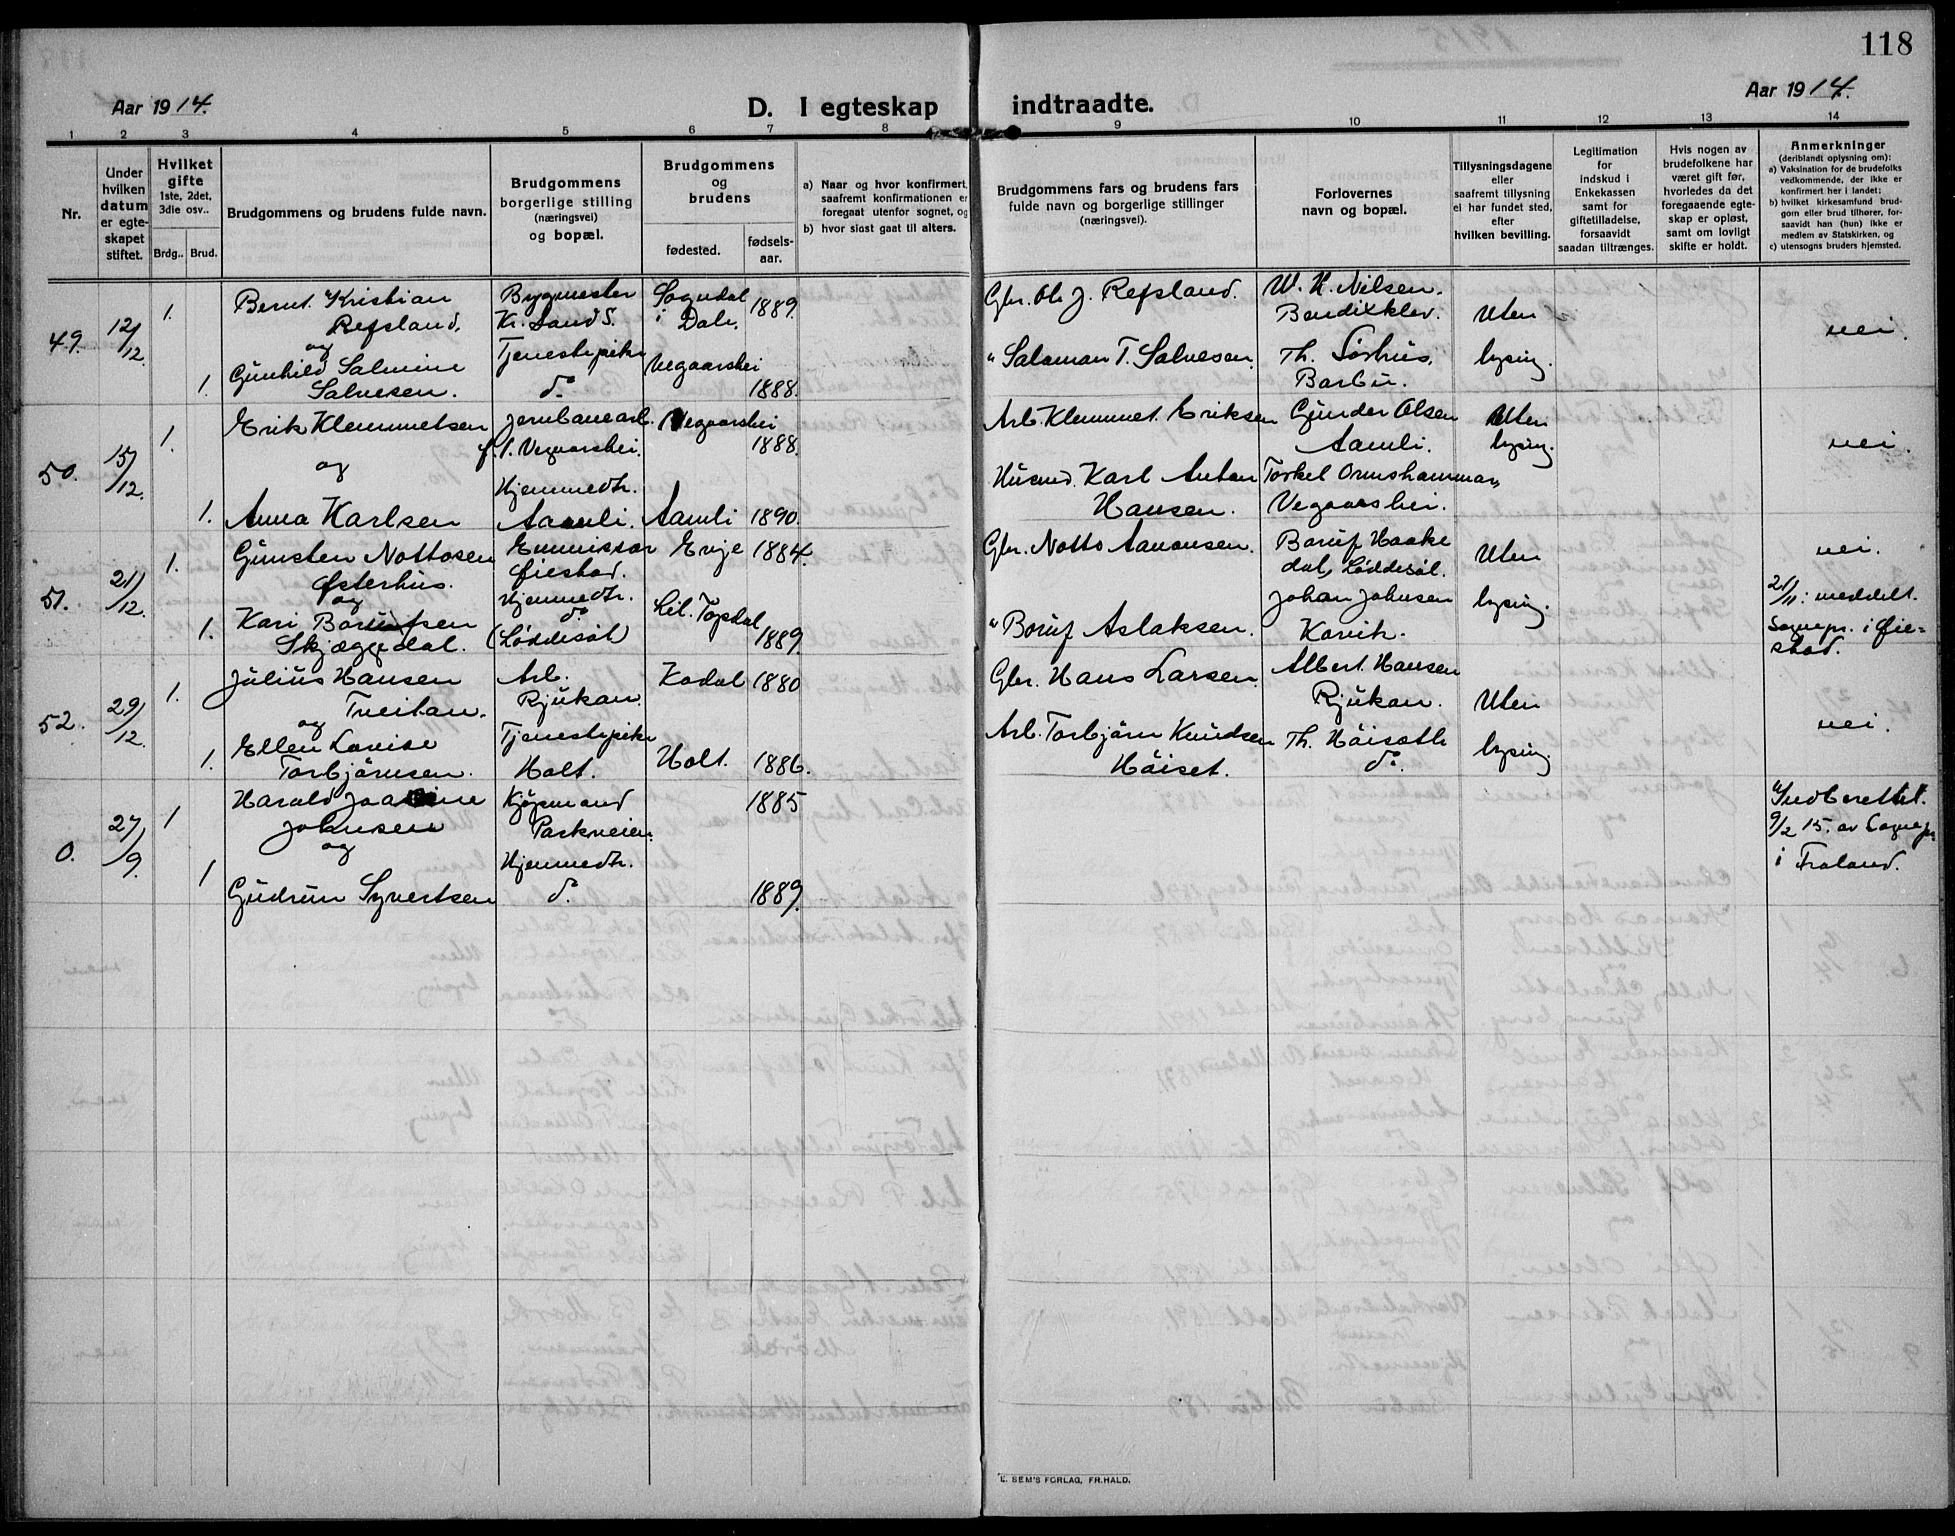 118
Aar 1914.
D. I egteskap indtraadte.
Aar 1914.
1 2 3 4 5 6 7 8 9 10 11 12 13 14
Nr.
Under hvilken datum er egte-skapet stiftet.
Hvilket gifte 1ste, 2det, 3die osv..
Brdg.. Brud.
Brudgommens og brudens fulde navn.
Brudgommens borgerlige stilling (næringsvei) og bopæl.
Brudgommens og brudens
fødested.
fødsels-aar.
a) Naar og hvor konfirmert, saafremt konfirmationen er foregaat utenfor sognet, og
b) hvor sidst gaat til alters.
Brudgommens fars og brudens fars fulde navn og borgerlige stillinger (næringsvei).
Forlovernes navn og bopæl.
Tillysningsdagene eller saafremt tillysning ei har fundet sted, efter hvilken bevilling.
Legitimation for indskud i Enkekassen samt for giftetilladelse, forsaavidt saadan tiltrænges.
Hvis nogen av brudefolkene har været gift før, hvorledes da det foregaaende egte-skap er opløst, samt om lovligt skifte er holdt.
Anmerkninger
(deriblandt oplysning om):
a) Vaksination for de brudefolks vedkommende, der ikke er konfirmert her i landet;
b) hvilket kirkesamfund brud-gom eller brud tilhører, for-saavidt han (hun) ikke er medlem av Statskirken, og
c) utensogns bruders hjemsted.
49. 12/12. 1. Bernt Kristian Refsland. Bygmester Kr.sand S. Sogndal i Dale. 1889. Gbr. Ole J. Refsland. W. H. Nilsen. Bendixklev. Uten lysing. nei.
og
1. Gunhild Salmine Salvesen. Tjenestepike do. Vegaarshei 1888. " Salaman T. Salvesen. Th. Sørhus, Barbu.
50. 15/12. 1. Erik Klemmetsen Jernbanearb. f. i. Vegaarshei. Vegaarshei 1888. Arb. Klemmet Eriksen Gunder Olsen Aamli. Uten lysing. nei.
og
1. Anna Karlsen Hjemmedtr. Aamli. Aamli 1890. Husmd. Karl Anton Hansen. Torkel Ormshammar, Vegaarshei.
51. 21/12. 1. Gunsten Nottosen Østerhus. Emmissær Øiestad. Evje 1884. Gbr. Notto Aanonsen. Boruf Haake dal, Løddesøl. Uten lysing. nei.
og
1. Kari Borufsen Skjæggedal. Hjemmedtr. do (Løddesøl Lil. Topdal 1889. " Boruf Aslaksen. Johan Johnsen Kovik. 21/11: meddelt. Sognepr. i Øie-stad.
52. 29/12. 1. Julius Hansen Tveitan. Arb. Rjukan. Kodal 1880 Gbr. Hans Larsen. Albert Hansen Rjukan. Uten lysing. nei.
og
1. Ellen Lovise Torbjørnsen. Tjenestepike Holt. Holt. 1886. Arb. Torbjørn Knudsen Høiset. Th. Høisæth do.
0. 27/9. 1 Harald Johnsen Kjøpmand Parkveien. 1885 Indberettet. 9/2 15. av Sognepr i Froland.
og
1 Gudrun Syvertsen Hjemmedtr. do. 1889.
E. SEM'S FORLAG, FR.HALD.